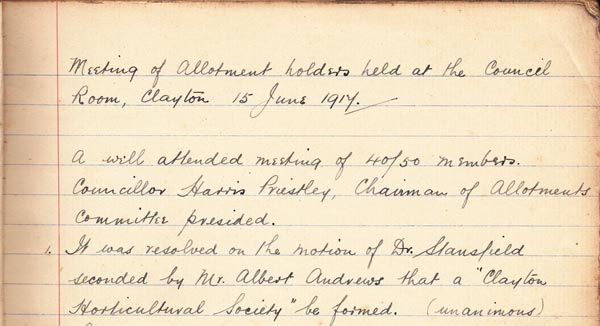 Meeting of Allotment holders held at the Council
Room, Clayton 15 June 1917.
A well attended meeting of 40/50 members.
Councillor Harris Priestley, Chairman of Allotments
Committee presided.
1. It was resolved on the motion of Dr. Stansfield
seconded by Mr. Albert Andrews that a "Clayton
Horticultural Society" be formed. (unanimous)